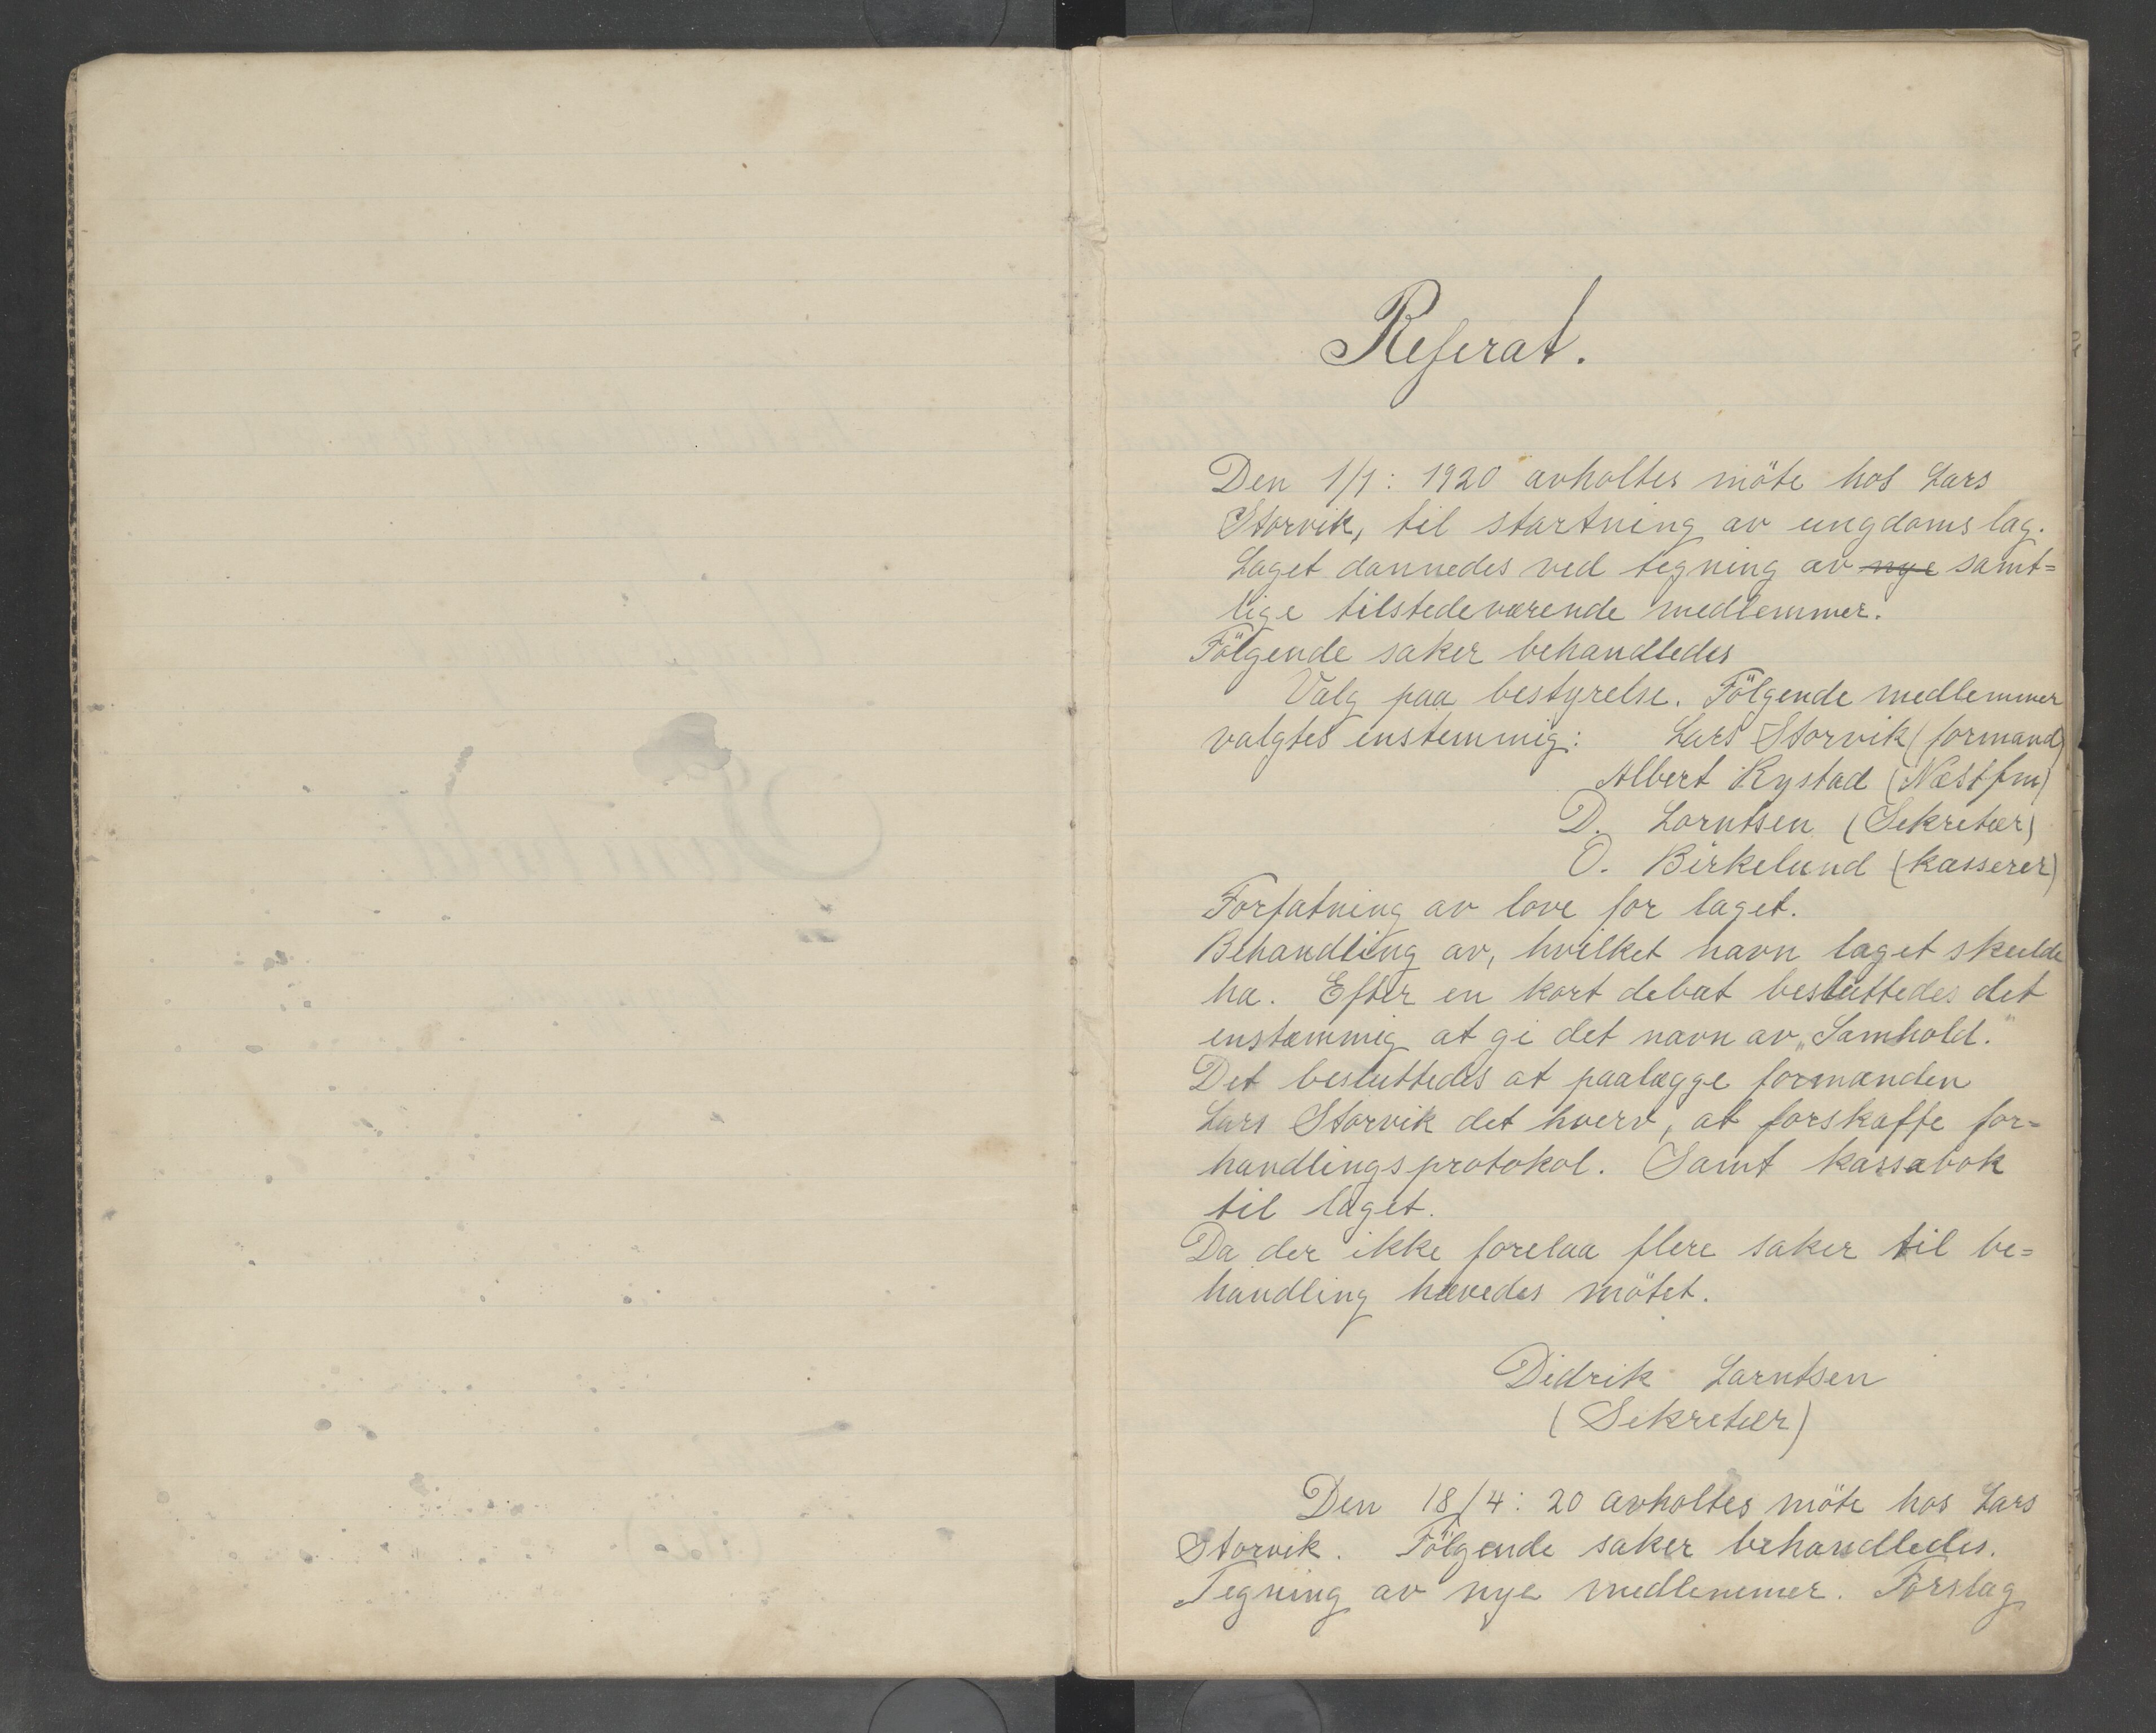 Referat.
Den 1/1: 1920 avholtes möte hos Lars
Storvik, til startning av ungdomslag.
Laget dannedes ved tegning av nye samt=
lige tilstedeværende medlemmer.
Fölgende saker behandledes
Valg paa bestyrelse. Fölgende medlemmer
valgtes enstemmig: Lars Storvik (formand)
Albert Rystad (Næstfm)
D. Lorntsen (Sekretær)
O. Birkelund (kasserer)
Forfatning av love for laget.
Behandling av, hvilket navn laget skulde
ha. Efter en kort debat besluttedes det
enstemmig at gi det navn av „Samhold."
Det besluttedes at paalægge formanden
Lars Storvik det hverv, at forskaffe for=
handlingsprotokol. Samt kassabok
til laget.
Da der ikke forelaa flere saker til be=
handling hævedes mötet.
Didrik Larntsen
(Sekretær)
Den 18/4: 20 avholtes möte hos Lars
Storvik. Fölgende saker behandledes.
Tegning av nye medlemmer. Forslag